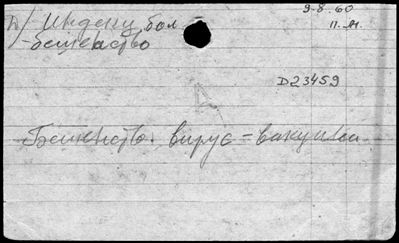 9.8.60
п/ Индекц бол.
п.м.
-бешенство
D23459
Бешенство. вирус = вакцина